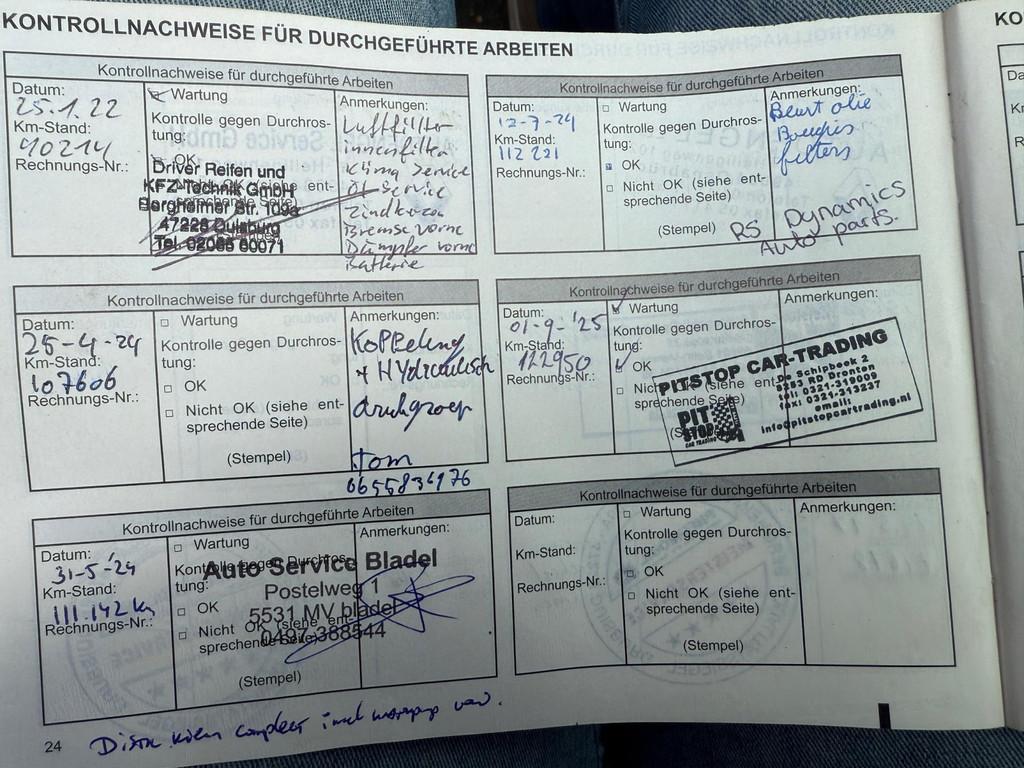 KONTROLLNACHWEISE FÜR DURCHGEFÜHRTE ARBEITEN
Kontrollnachweise für durchgeführte Arbeiten
Datum:
25.1.22
Km-Stand:
90214
Rechnungs-Nr.:
Wartung
Kontrolle gegen Durchros-
tung:
OK
Nicht OK (siehe ent-
sprechende Seite)
Driver Reifen und
KFZ-Technik GmbH
Bergheimer Str. 109a
47228 Duisburg
Tel. 02065 60071
Anmerkungen:
Luftfilter
innenfilter
Klima Service
Öl Service
Zindkerzen
Bremse vorne
Dämpfer vorne
Batterie
Kontrollnachweise für durchgeführte Arbeiten
Datum:
25-4-24
Km-Stand:
107606
Rechnungs-Nr.:
Wartung
Kontrolle gegen Durchros-
tung:
OK
Nicht OK (siehe ent-
sprechende Seite)
(Stempel)
Anmerkungen:
Koppeling
+ Hydraulisch
drukgroep
Tom
Kontrollnachweise für durchgeführte Arbeiten
Datum:
31-5-24
Km-Stand:
111.142 km
Rechnungs-Nr.:
Wartung
Kontrolle gegen Durchros-
tung:
OK
Nicht OK (siehe ent-
sprechende Seite)
(Stempel)
Anmerkungen:
Auto Service Bladel
Postelweg 1
5531 MV bladel
0497-388544
compleet
24
Kontrollnachweise für durchgeführte Arbeiten
Datum:
12-7-24
Km-Stand:
112 221
Rechnungs-Nr.:
Wartung
Kontrolle gegen Durchros-
tung:
OK
Nicht OK (siehe ent-
sprechende Seite)
(Stempel)
Anmerkungen:
Beurt olie
Bougies
filters
RS Dynamics
Auto parts.
Kontrollnachweise für durchgeführte Arbeiten
Datum:
01-9-'25
Km-Stand:
122950
Rechnungs-Nr.:
Wartung
Kontrolle gegen Durchros-
tung:
OK
Nicht OK (siehe ent-
sprechende Seite)
(Stempel)
Anmerkungen:
PITSTOP CAR-TRADING
PIT
STOP
CAR TRADING
De Schipbeek 2
8253 RD Dronten
tel: 0321-319009
fax: 0321-313237
email:
info@pitstopcartrading.nl
Kontrollnachweise für durchgeführte Arbeiten
Datum:
Km-Stand:
Rechnungs-Nr.:
Wartung
Kontrolle gegen Durchros-
tung:
OK
Nicht OK (siehe ent-
sprechende Seite)
(Stempel)
Anmerkungen:
KO